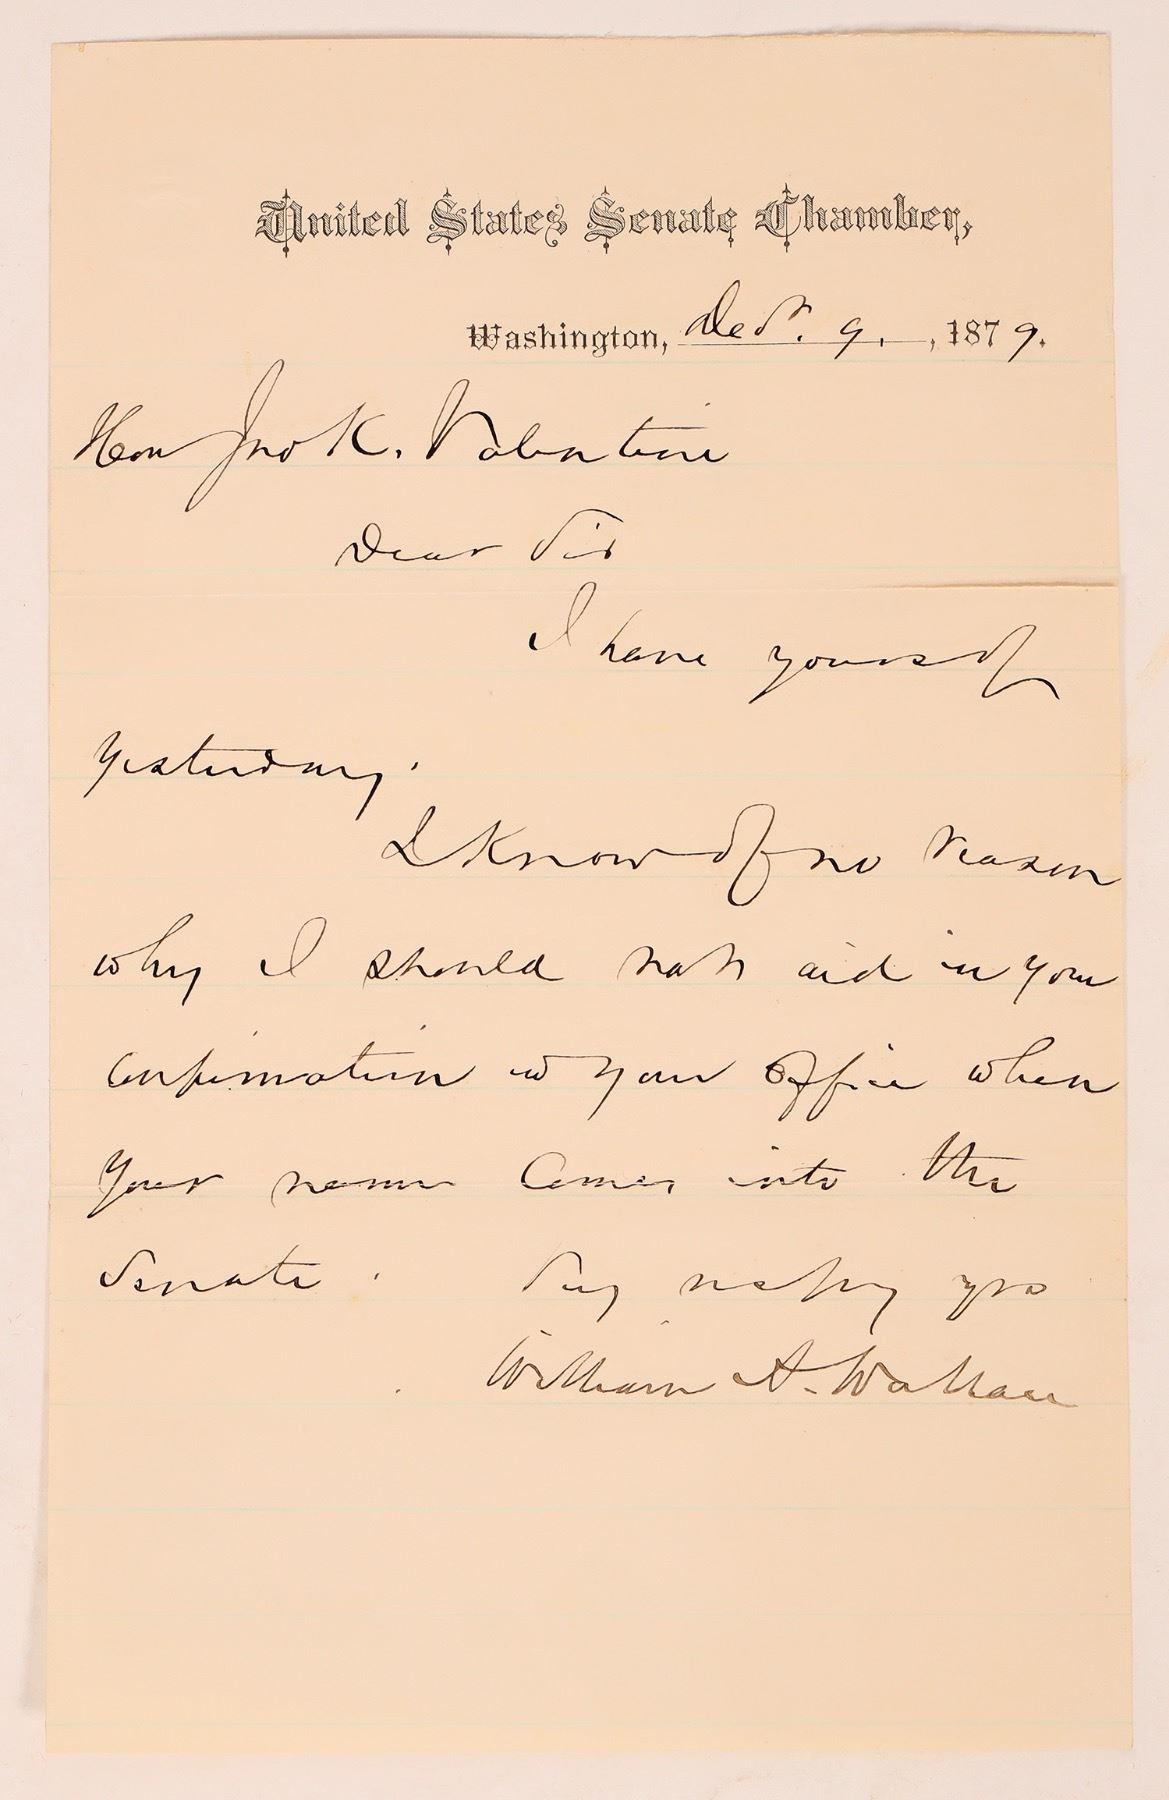 United States Senate Chamber,
Washington, Decr. 9, 1879.
Hon Jno K. Valentine
Dear Sir
I have yours of
yesterday.
I know of no reason
why I should not aid in your
confirmation to your office when
your name comes into the
Senate. Very respy yrs
William A. Wallace